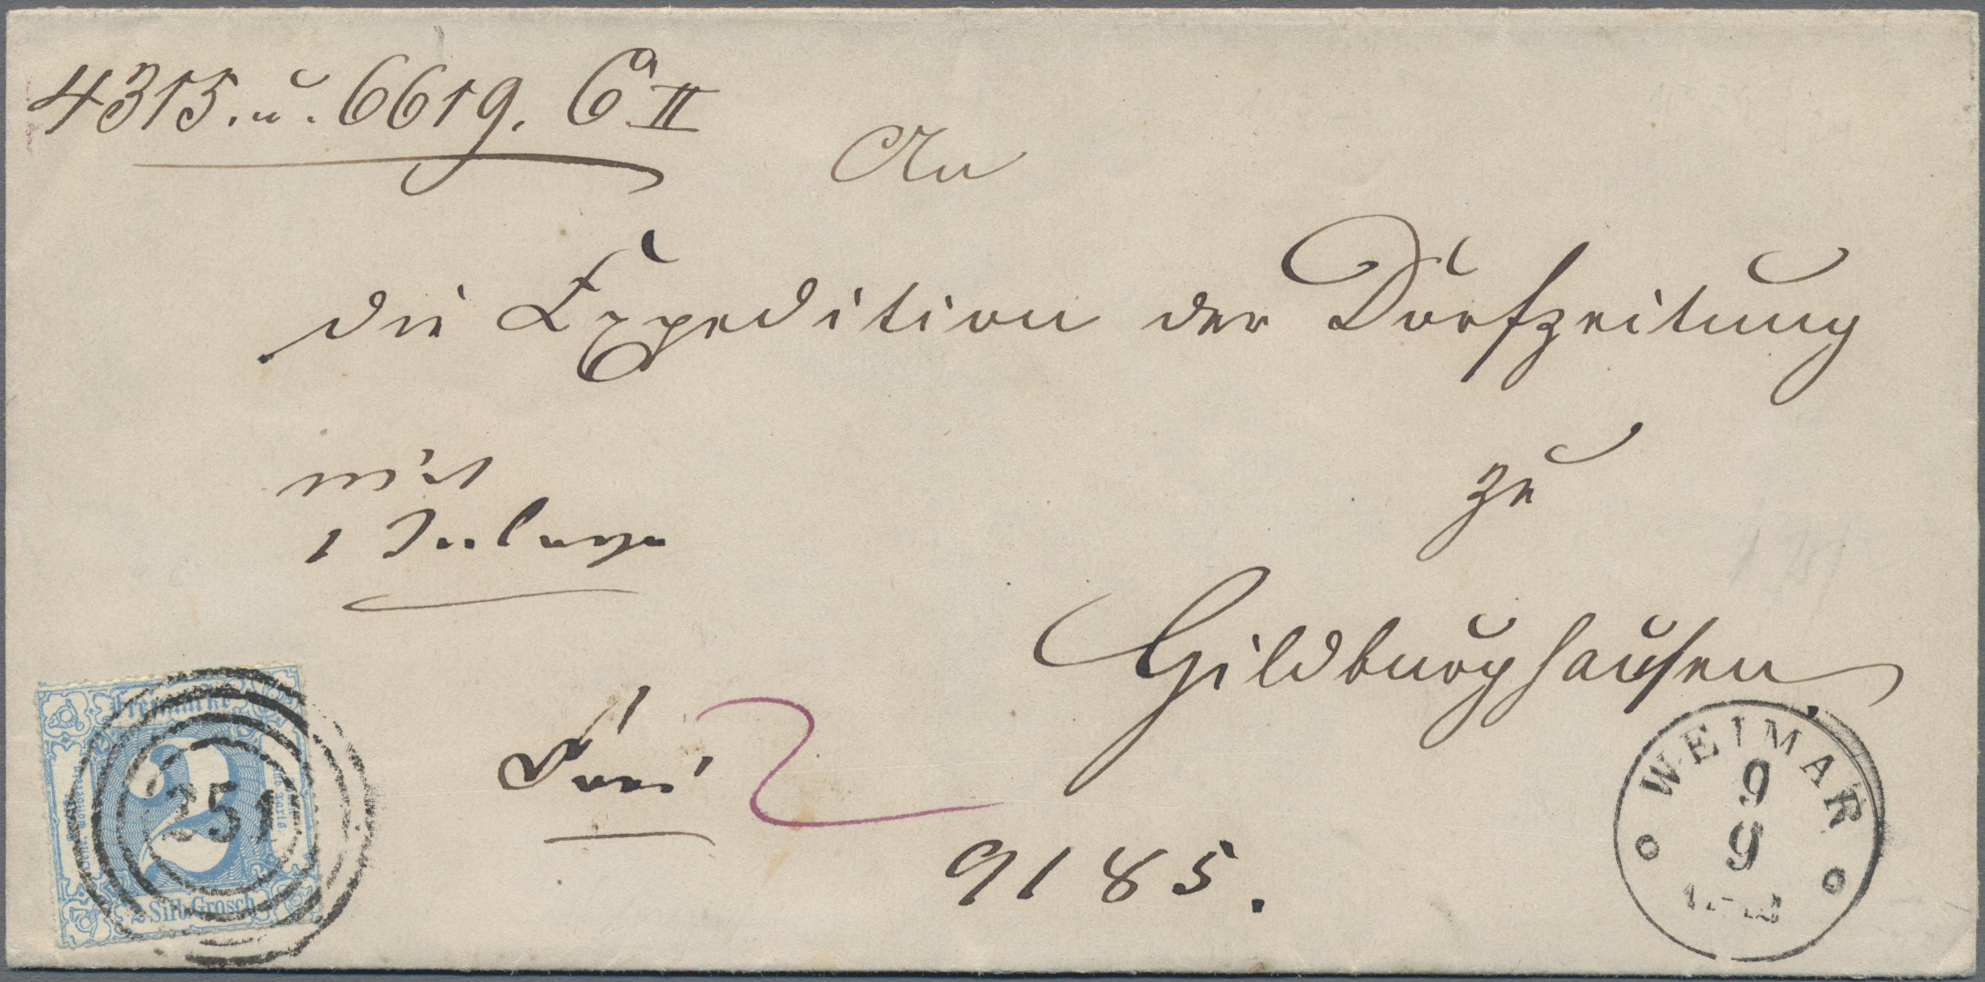 4315. u. 6619. C II
An
die Expedition der Dorfzeitung
zu
Hildburghausen
mit
1 Inlage
frei 2
9185.
Freimarke
2
2 Silb. Grosch.
251
WEIMAR
9
9